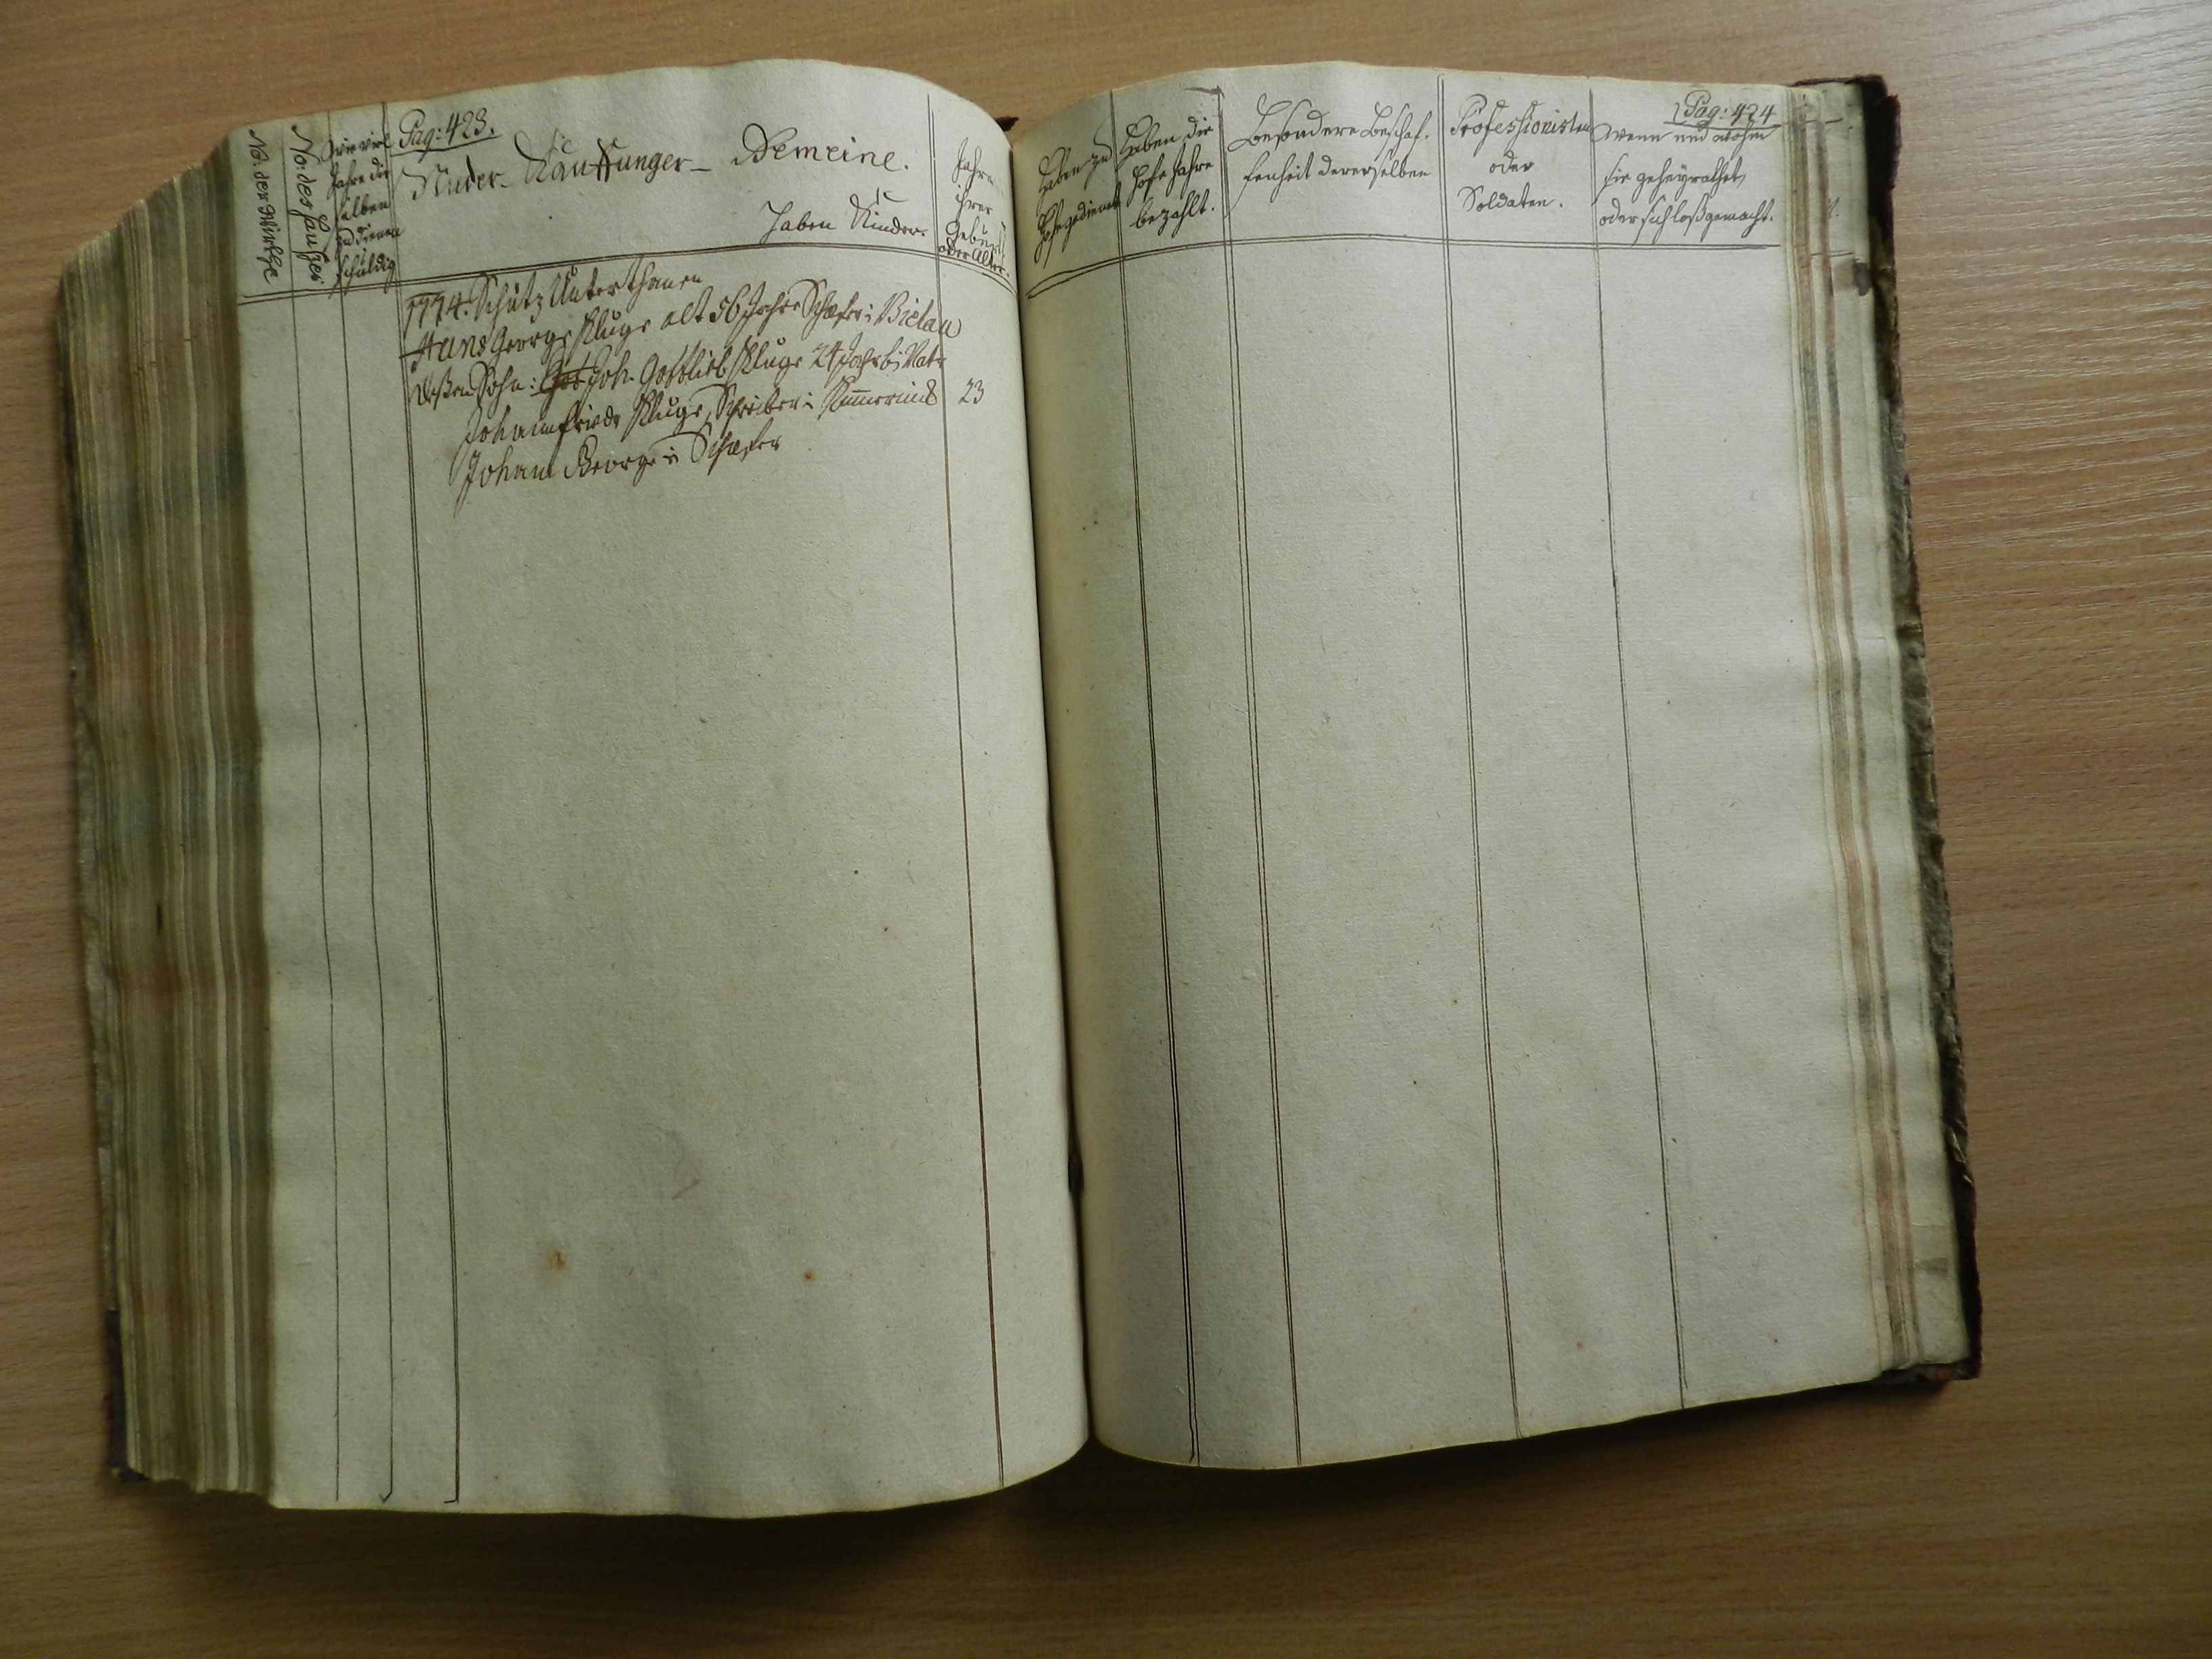 No. der Wirthe
No. des Hauses
Wie viel
Jahre die
selben
zu dienen
schuldig
Pag: 423.
Nieder-Kauffunger-Gemeine.
Haben Kinder.
Jahre
ihrer
Geburt
oder Alter.
1774. Schutz Unterthanen
Hans George Kluge alt 56 Jahr Schäfer i Bielau
deßen Sohn: Joh. Gottlieb Kluge 24 Jahr b. Vatr
Johann Friedr Kluge, Schreiber i 23
Johann George i Schäfer
Haben zu
Hofe gedienet
Haben die
Hofe Jahre
bezahlt.
Besondere Beschaf-
fenheit dererselben
Professionisten
oder
Soldaten.
Pag: 424
Wenn und wohin
sie geheyrathet,
oder sich loßgemacht.